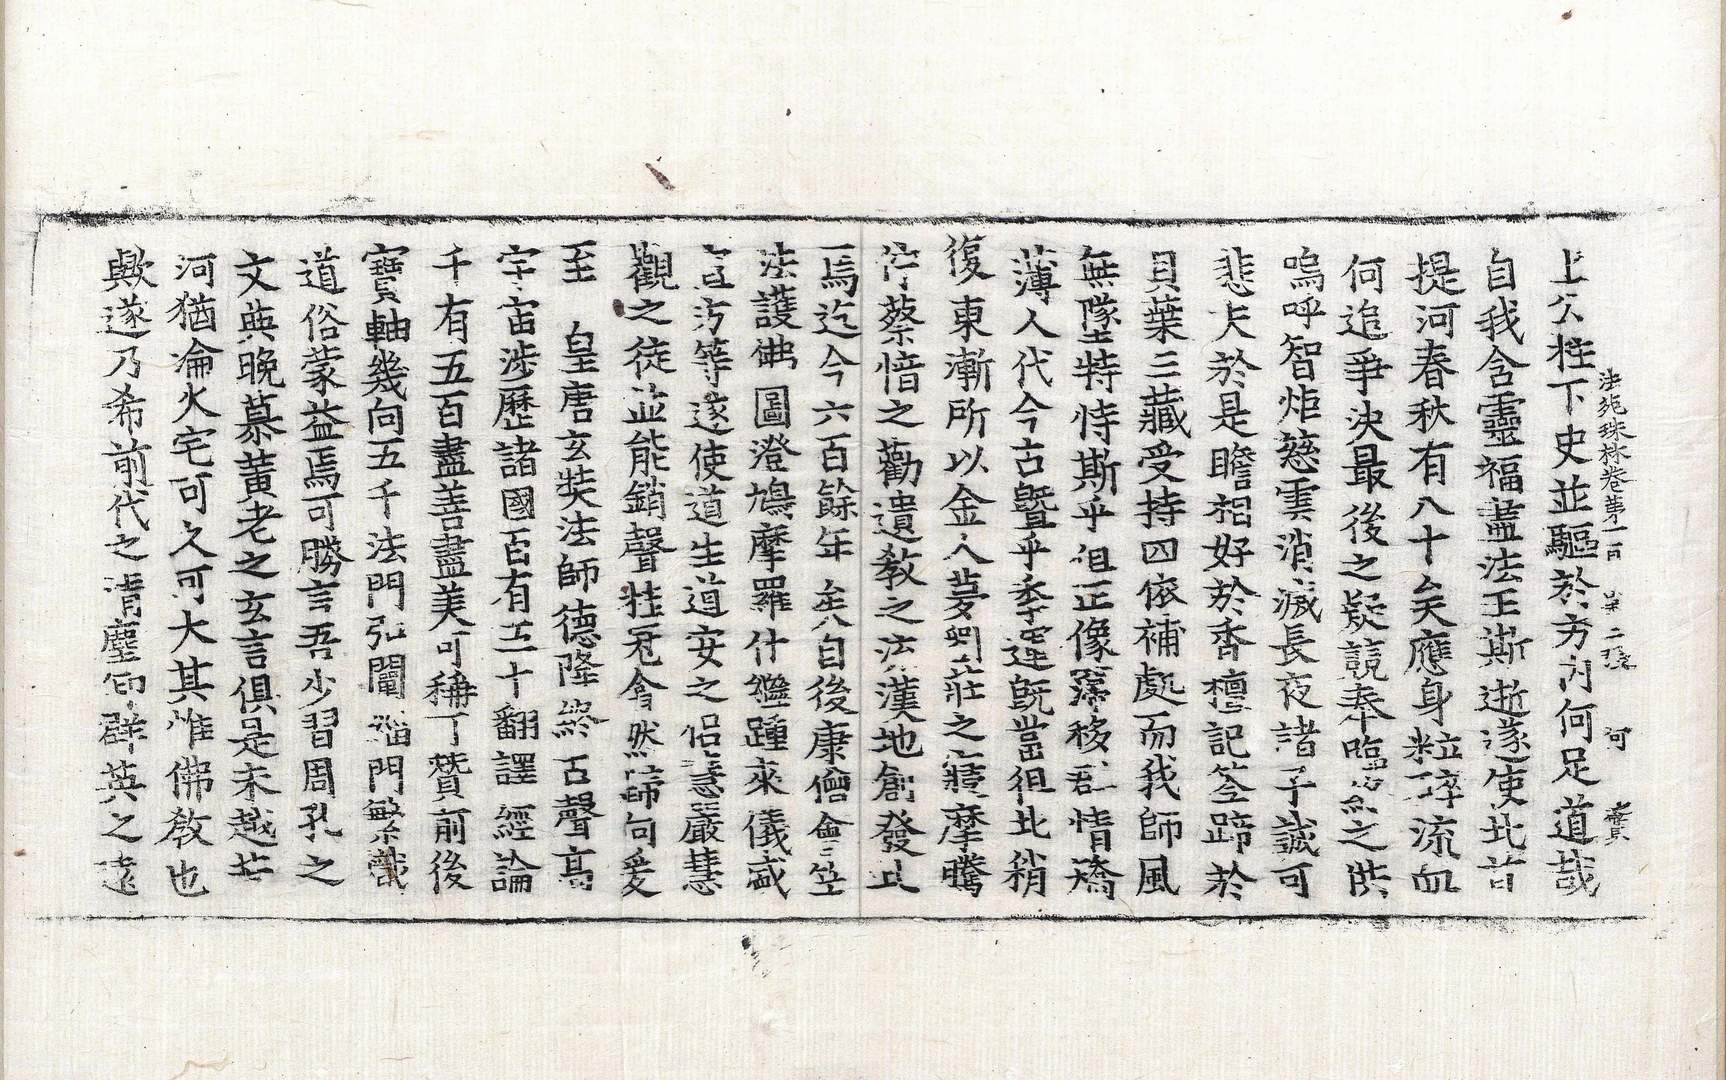 法苑珠林卷第一百 第二張 河
上公柱下史並驅於方內何足道哉
自我含靈福盡法王斯逝遂使北首
提河春秋有八十矣應身粒碎流血
何追爭決最後之疑競奉臨終之供
嗚呼智炬慈雲消滅長夜諸子誠可
悲夫於是瞻相好於香檀記筌蹄於
貝葉三藏受持四依補處而我師風
無墜特恃斯乎但正像寖移群情矯
薄人代今古曁乎季運旣當徂北稍
復東漸所以金人夢劉莊之寢摩騰
佇蔡愔之勸遺敎之法漢地創發此
焉迄今六百餘年矣自後康僧會竺
法護佛圖澄鳩摩羅什繼踵來儀盛
宣方等遂使道生道安之侶慧嚴慧
觀之徒並能銷聲挂冠翕然歸向爰
至 皇唐玄奘法師德隆終古聲高
宇宙涉歷諸國百有五十翻譯經論
千有五百盡善盡美可稱可贊前後
寶軸幾向五千法門弘闡緇門繁熾
道俗蒙益焉可勝言吾少習周孔之
文典晚慕黃老之玄言俱是未越苦
河猶淪火宅可久可大其惟佛敎也
歟遂乃希前代之淸塵仰群英之遠